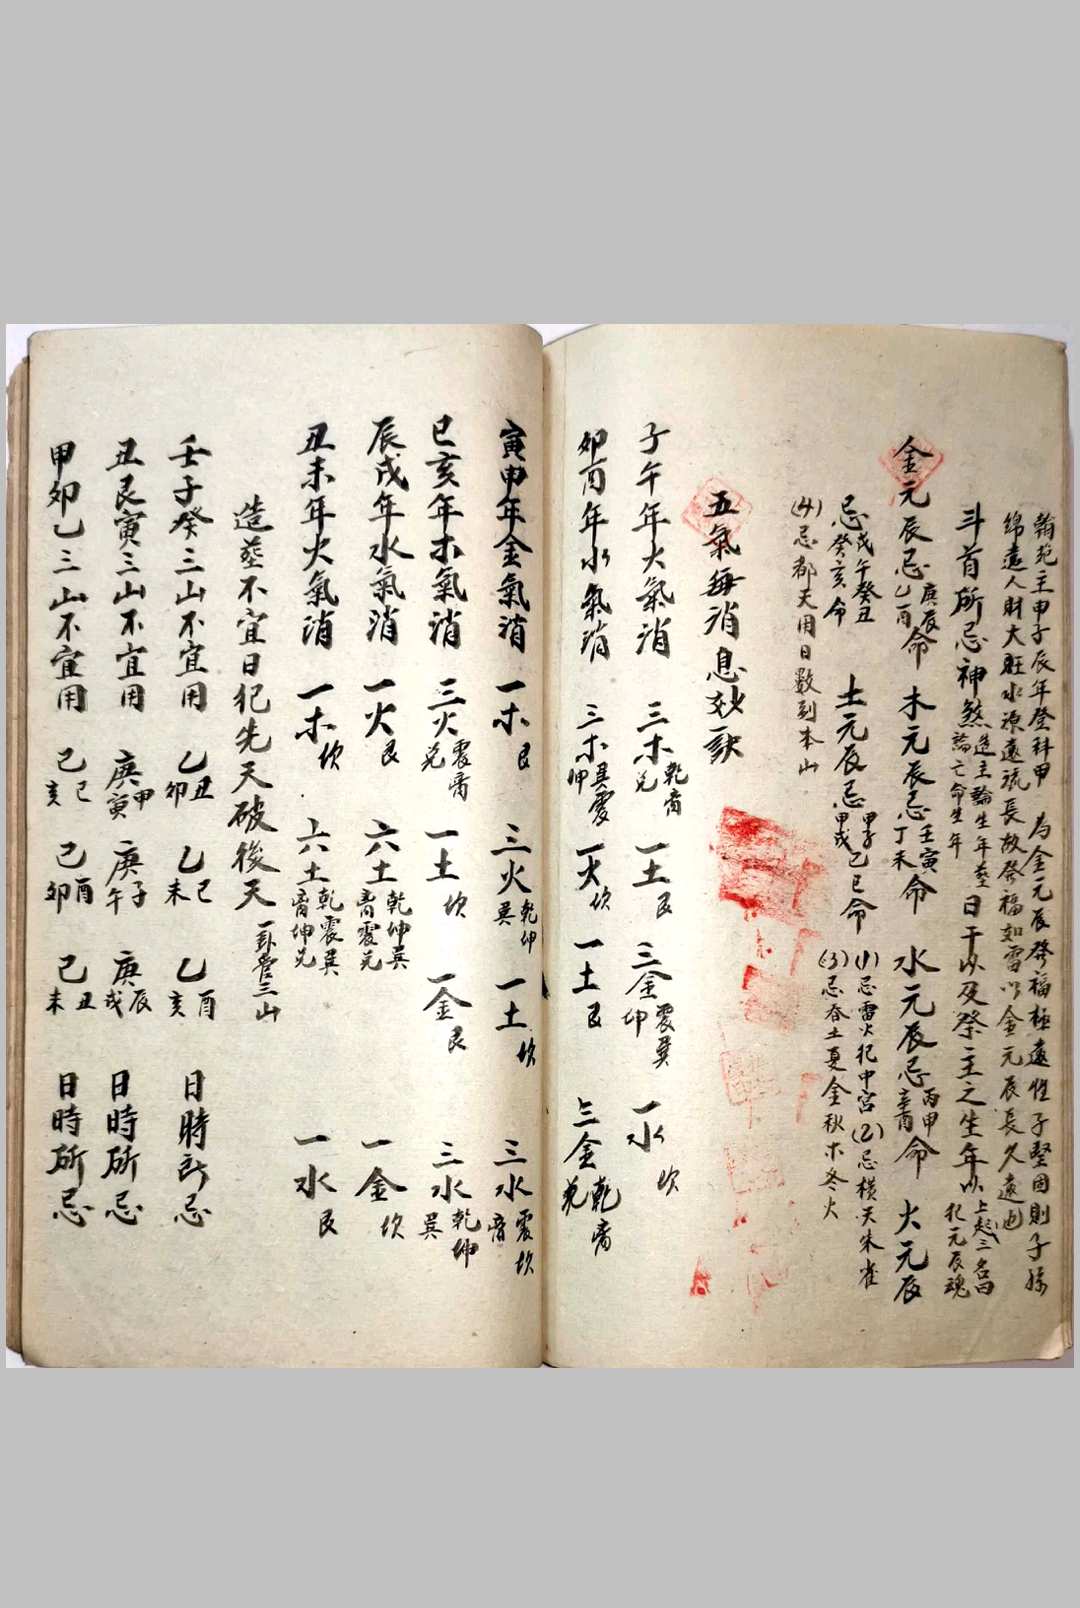 翰苑主申子辰年登科甲 為金元辰發福極遠性子堅固則子孫
綿遠人財大旺水源遠流長故發福如雷以金元辰長久遠也
斗首所忌神煞造主論生年塟論亡命生年日干以及祭主之生年以上起三名曰犯元辰魂
金元辰忌庚辰乙酉命 木元辰忌壬寅丁未命 水元辰忌丙申辛酉命 火元辰
忌戊午癸丑癸亥命 土元辰忌甲子甲戌己巳命 (1)忌雷火犯中宮(2)忌橫天朱雀
(4)忌都天用日數到本山 (3)忌春土夏金秋木冬火
五氣每消息妙訣
子午年火氣消 三木乾离兌 一土艮 三金震巽坤 一水坎
卯酉年水氣消 三木巽震坤 一火坎 一土艮 三金乾离兌
寅申年金氣消 一木艮 三火乾坤巽 一土坎 三水震坎离
巳亥年木氣消 三火震离兌 一土坎 一金艮 三水乾坤巽
辰戌年水氣消 一火艮 六土乾坤巽离震兌 一金坎
丑未年火氣消 一木坎 六土乾震巽离坤兌 一水艮
造塟不宜日犯先天破後天一卦管三山
壬子癸三山不宜用 乙丑卯 乙巳未 乙酉亥 日時所忌
丑艮寅三山不宜用 庚申寅 庚子午 庚辰戌 日時所忌
甲卯乙三山不宜用 己巳亥 己酉卯 己丑未 日時所忌